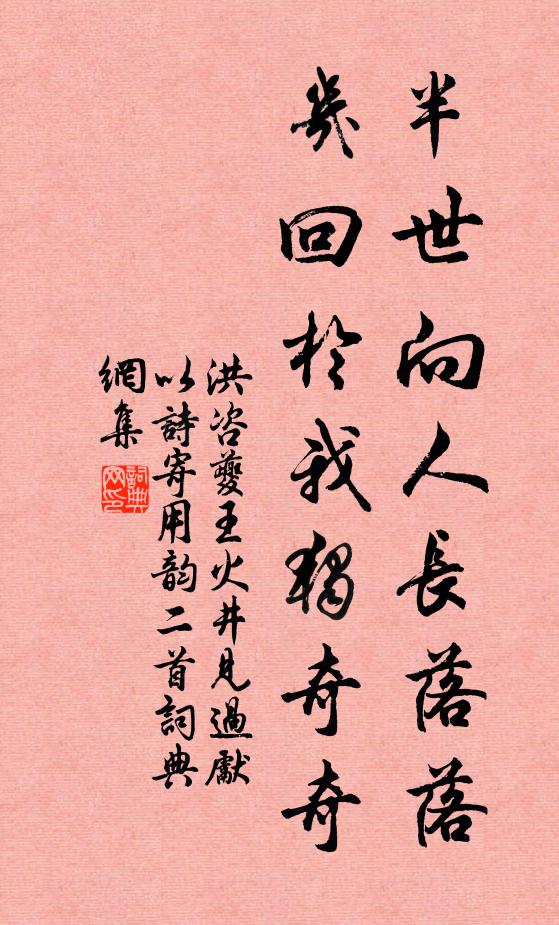 半世向人長落落
幾回於我獨奇奇
洪咨夔王火井見過獻
以詩寄用韵二首詞典
網集
詞典
网印